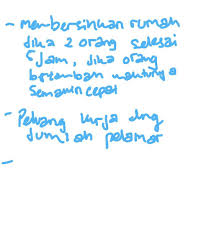 - Membersihkan rumah
jika 2 orang selesai
5 jam, jika orang
bertambah waktunya
semakin cepat
- Peluang kerja dng
jumlah pelamar
-